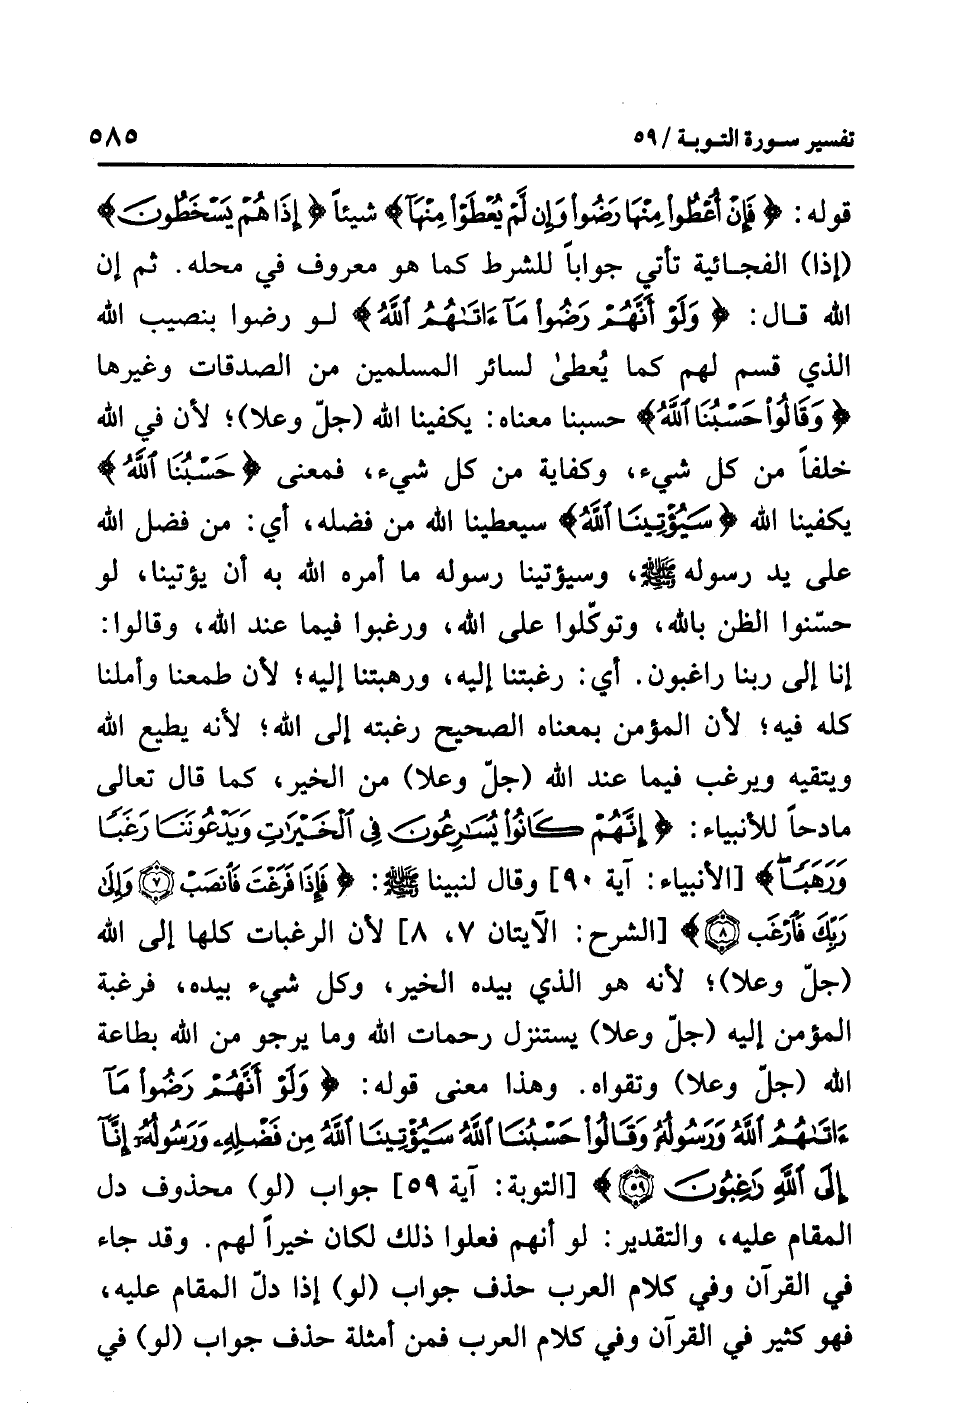 تفسير سورة التوبة / ٥٩ ٥٨٥
قوله: ﴿فَإِنْ أُعْطُوا۟ مِنْهَا رَضُوا۟ وَإِن لَّمْ يُعْطَوْا۟ مِنْهَآ﴾ شيئاً ﴿إِذَا هُمْ يَسْخَطُونَ﴾
(إذا) الفجائية تأتي جواباً للشرط كما هو معروف في محله. ثم إن
الله قال: ﴿وَلَوْ أَنَّهُمْ رَضُوا۟ مَآ ءَاتَىٰهُمُ ٱللَّهُ﴾ لو رضوا بنصيب الله
الذي قسم لهم كما يُعطىٰ لسائر المسلمين من الصدقات وغيرها
﴿وَقَالُوا۟ حَسْبُنَا ٱللَّهُ﴾ حسبنا معناه: يكفينا الله (جلّ وعلا)؛ لأن في الله
خلفاً من كل شيء، وكفاية من كل شيء، فمعنى ﴿حَسْبُنَا ٱللَّهُ﴾
يكفينا الله ﴿سَيُؤْتِينَا ٱللَّهُ﴾ سيعطينا الله من فضله، أي: من فضل الله
على يد رسوله ﷺ، وسيؤتينا رسوله ما أمره الله به أن يؤتينا، لو
حسّنوا الظن بالله، وتوكّلوا على الله، ورغبوا فيما عند الله، وقالوا:
إنا إلى ربنا راغبون. أي: رغبتنا إليه، ورهبتنا إليه؛ لأن طمعنا وأملنا
كله فيه؛ لأن المؤمن بمعناه الصحيح رغبته إلى الله؛ لأنه يطيع الله
ويتقيه ويرغب فيما عند الله (جلّ وعلا) من الخير، كما قال تعالى
مادحاً للأنبياء: ﴿إِنَّهُمْ كَانُوا۟ يُسَٰرِعُونَ فِى ٱلْخَيْرَٰتِ وَيَدْعُونَنَا رَغَبًا
وَرَهَبًا ۖ﴾ [الأنبياء: آية ٩٠] وقال لنبينا ﷺ: ﴿فَإِذَا فَرَغْتَ فَٱنصَبْ ٧ وَإِلَىٰ
رَبِّكَ فَٱرْغَب ٨﴾ [الشرح: الآيتان ٧، ٨] لأن الرغبات كلها إلى الله
(جلّ وعلا)؛ لأنه هو الذي بيده الخير، وكل شيء بيده، فرغبة
المؤمن إليه (جلّ وعلا) يستنزل رحمات الله وما يرجو من الله بطاعة
الله (جلّ وعلا) وتقواه. وهذا معنى قوله: ﴿وَلَوْ أَنَّهُمْ رَضُوا۟ مَآ
ءَاتَىٰهُمُ ٱللَّهُ وَرَسُولُهُۥ وَقَالُوا۟ حَسْبُنَا ٱللَّهُ سَيُؤْتِينَا ٱللَّهُ مِن فَضْلِهِۦ وَرَسُولُهُۥٓ إِنَّآ
إِلَى ٱللَّهِ رَٰغِبُونَ ٥٩﴾ [التوبة: آية ٥٩] جواب (لو) محذوف دل
المقام عليه، والتقدير: لو أنهم فعلوا ذلك لكان خيراً لهم. وقد جاء
في القرآن وفي كلام العرب حذف جواب (لو) إذا دلّ المقام عليه،
فهو كثير في القرآن وفي كلام العرب فمن أمثلة حذف جواب (لو) في